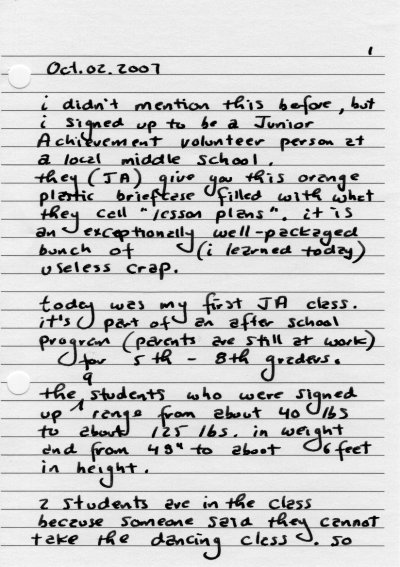 1
Oct. 02. 2007
i didn't mention this before, but
i signed up to be a Junior
Achievement volunteer person at
a local middle school.
they (JA) give you this orange
plastic briefcase filled with what
they call "lesson plans". it is
an exceptionally well-packaged
bunch of (i learned today)
useless crap.
today was my first JA class.
it's part of an after school
program (parents are still at work)
for 5th - 8th graders.
9
the students who were signed
up range from about 40 lbs
to about 125 lbs. in weight
and from 48" to about 6 feet
in height.
2 students are in the class
because someone said they cannot
take the dancing class. so